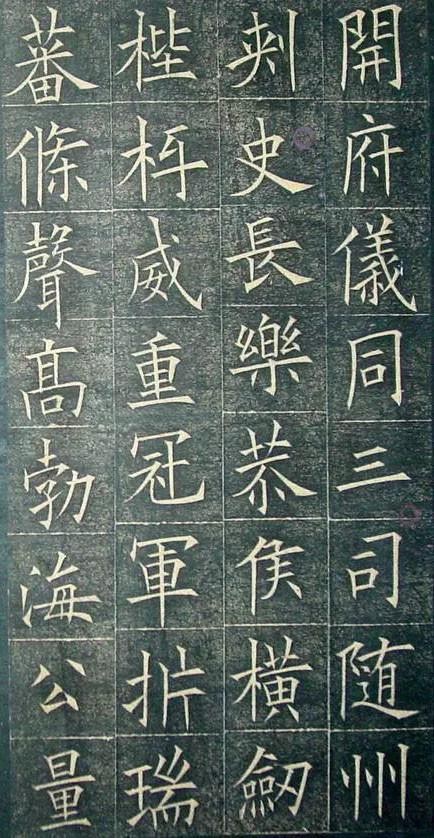 開府儀同三司随州
刾史長樂恭侯橫劒
梐枑威重冠軍折瑞
蕃條聲髙勃海公量